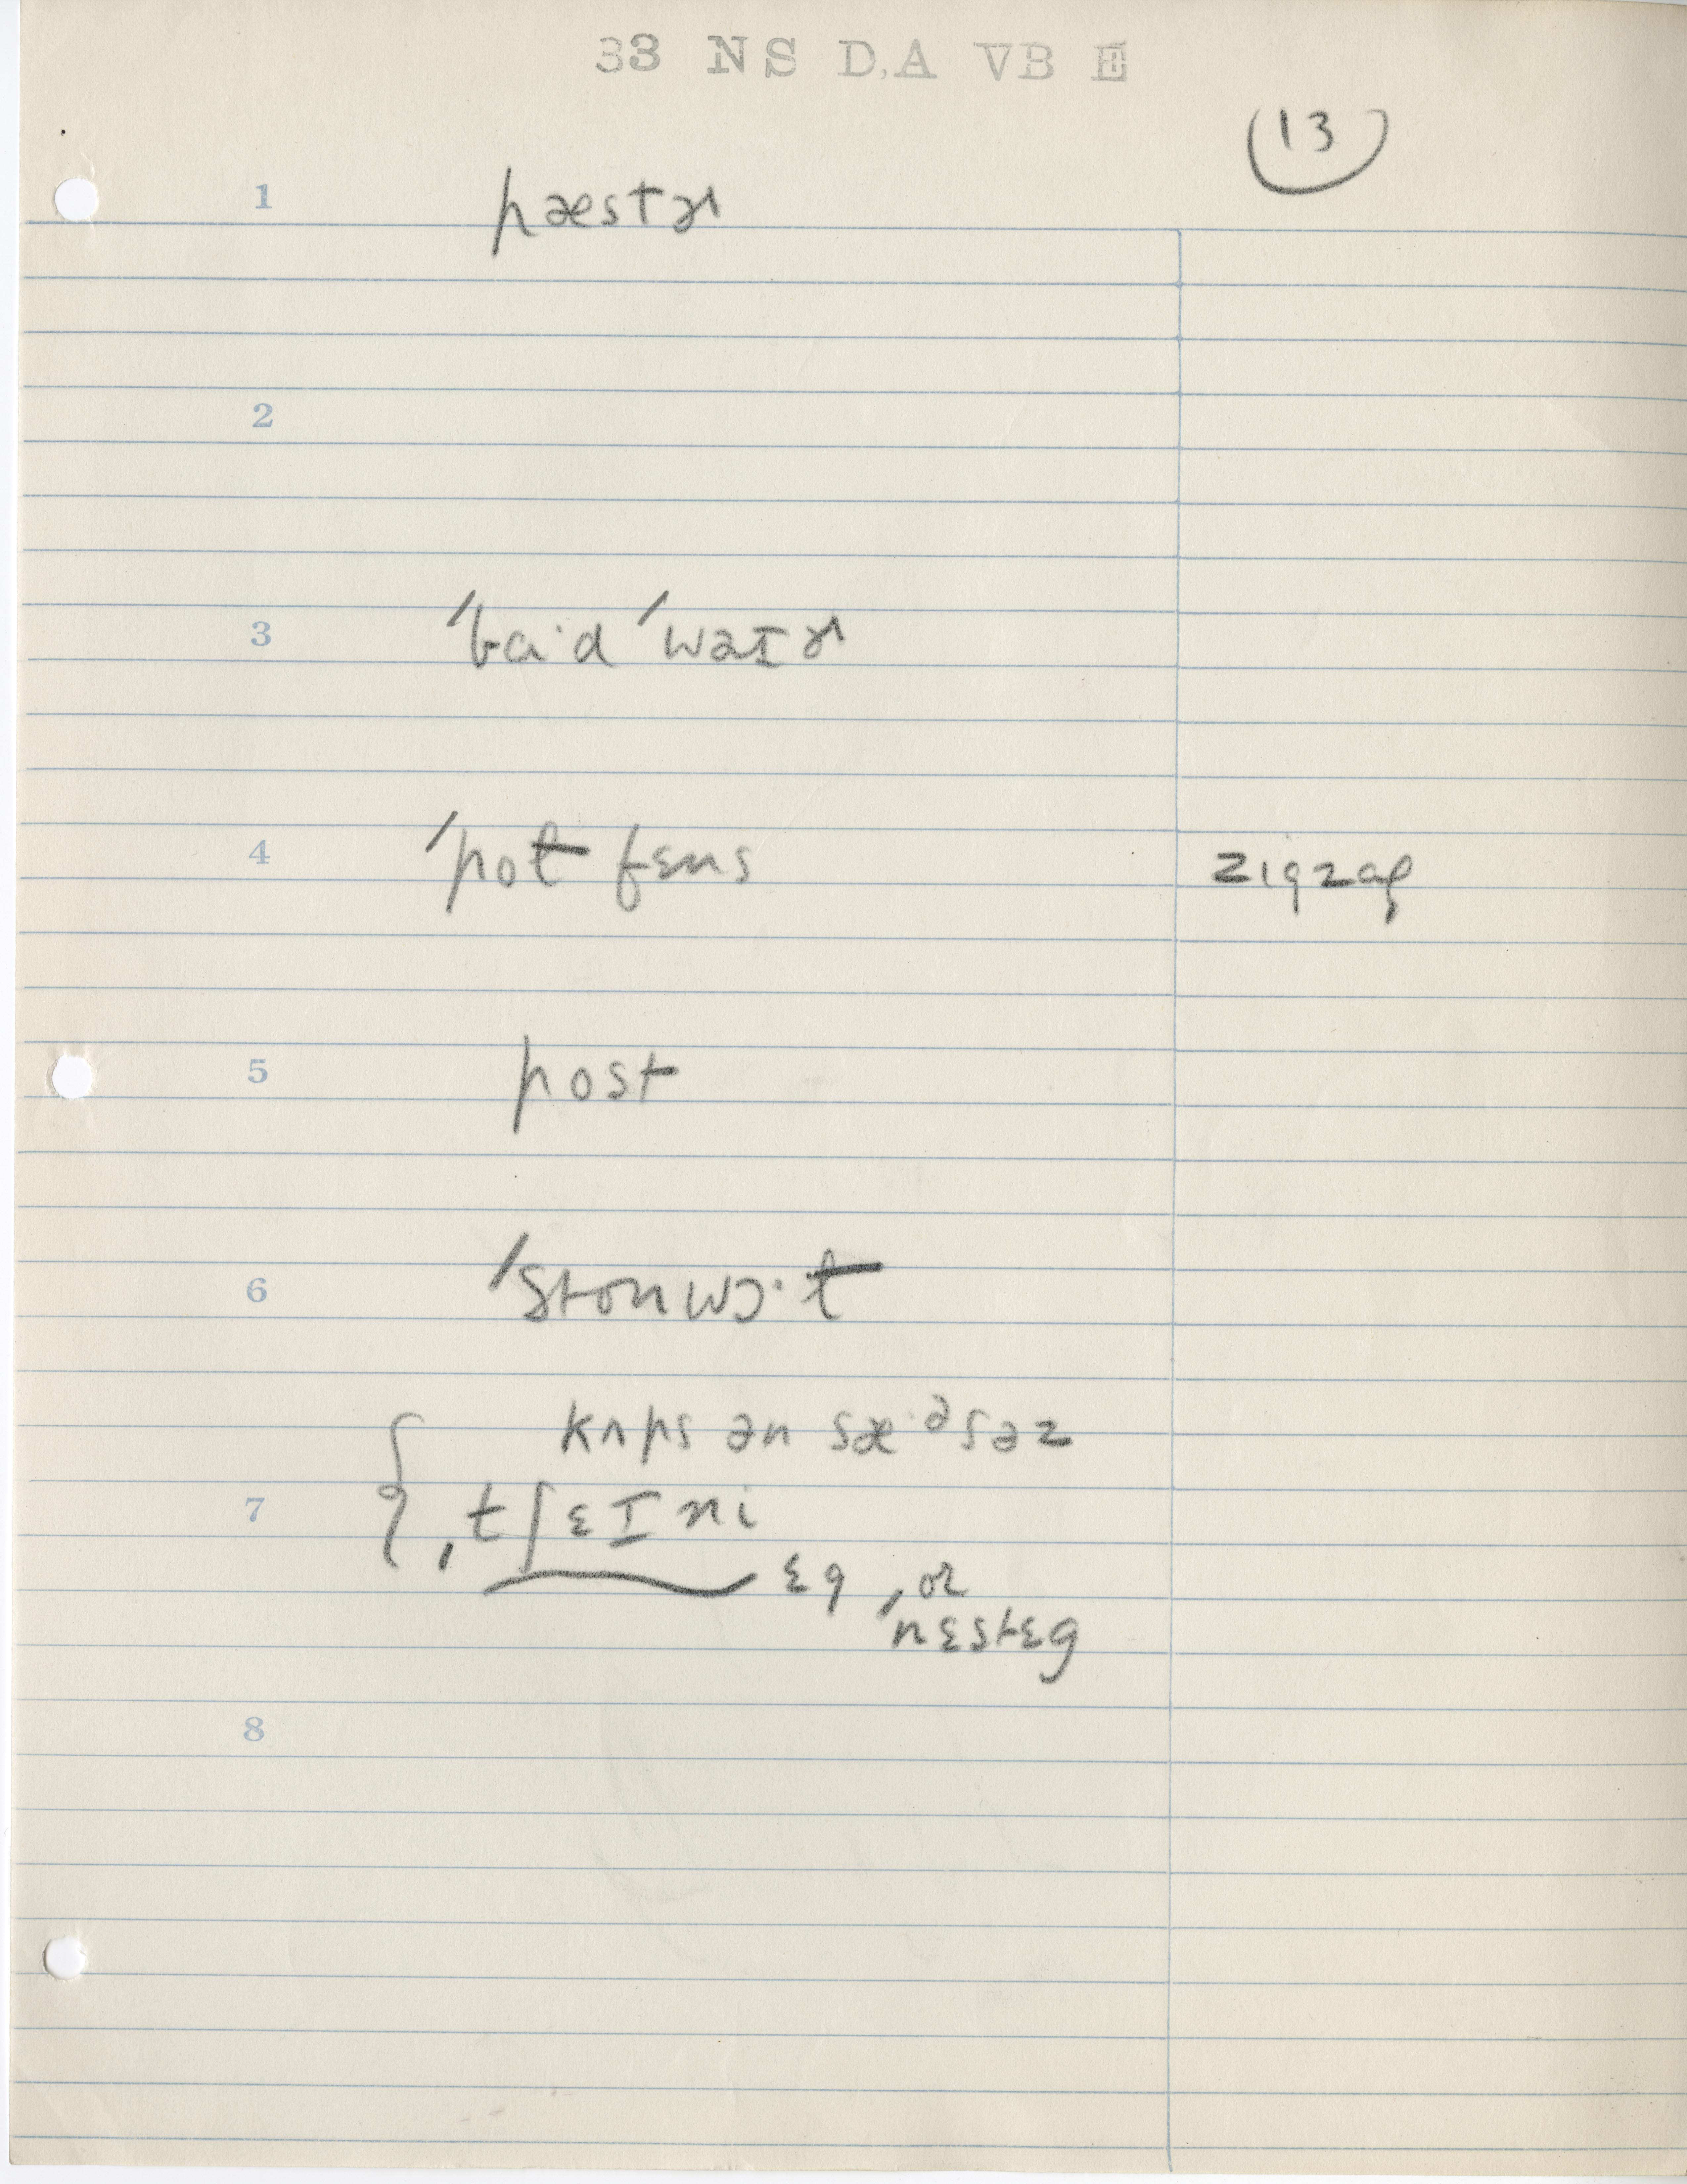 33 NS D,A VB E
13
1 pæstɚ
2
3 ˈbɑˑd ˈwaɪɚ
4 ˈpot fɛns zigzag
5 post
6 ˈstonwɔˑɫ
kʌps ən sæˑᵊsəz
7 ˌtʃɛɪni
ɛg, or
ˈnɛstɛg
8